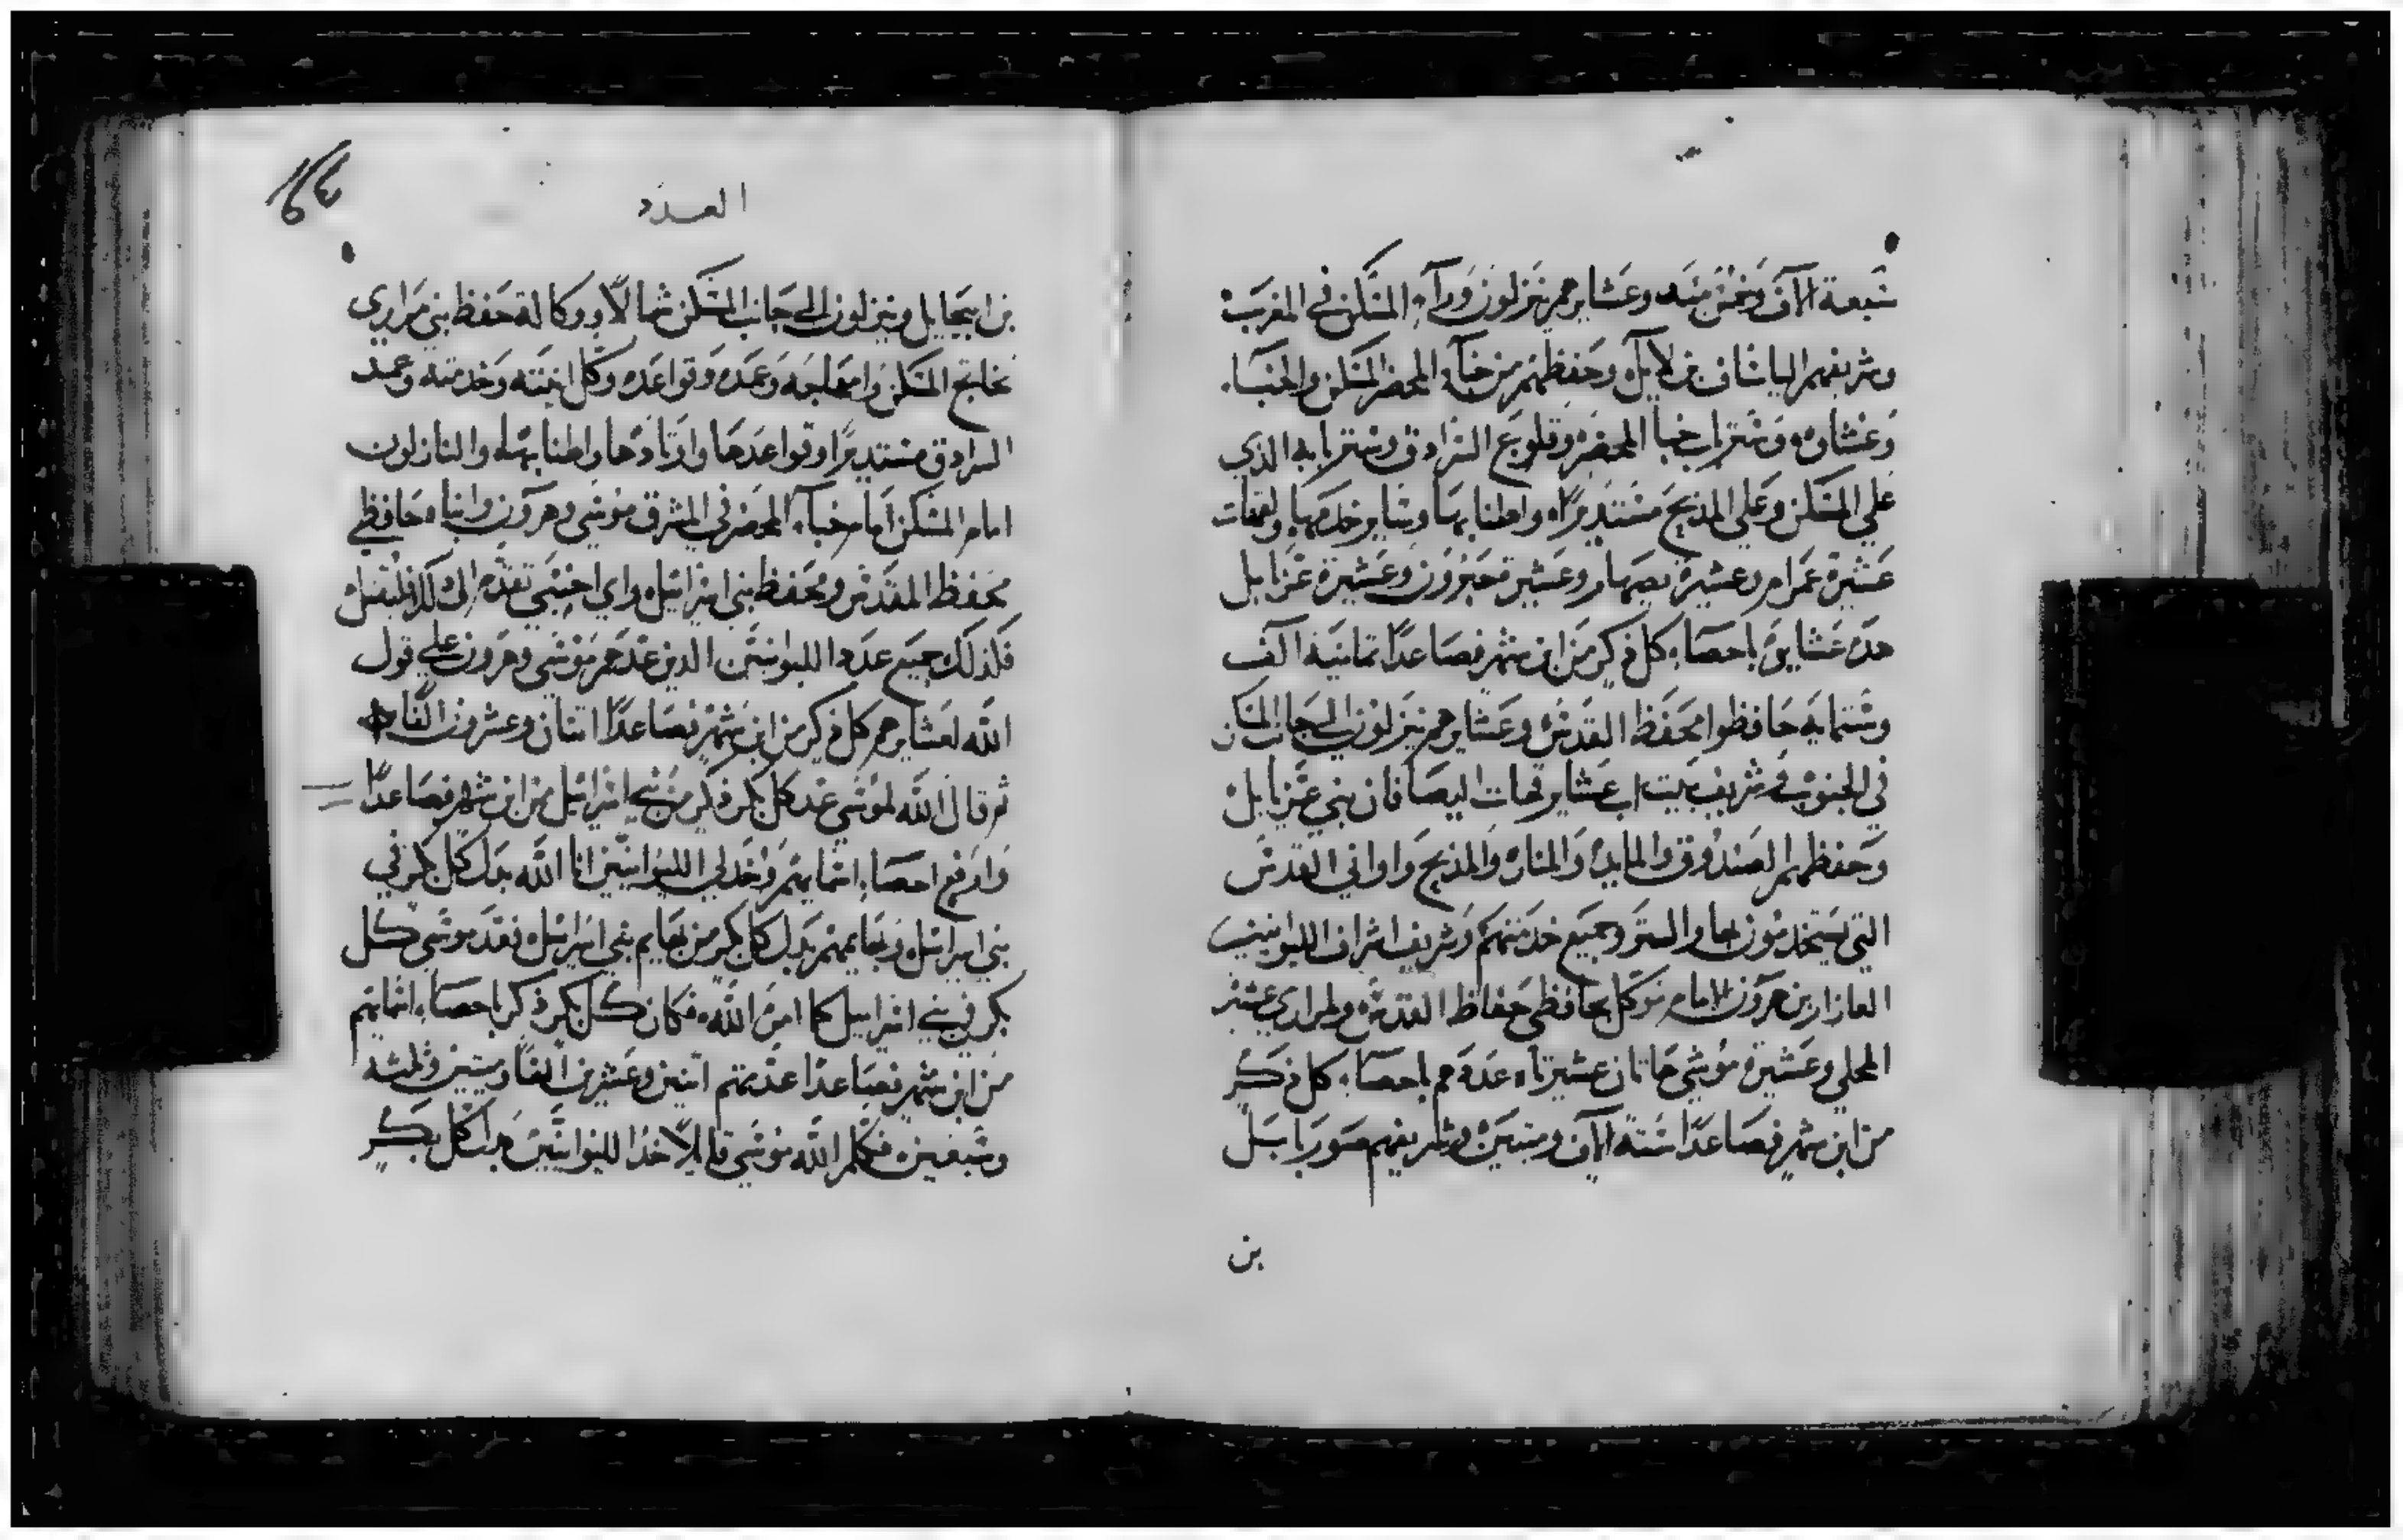 سبعة الاف وخمس ميه وعشايرهم ينزلون ورآء المسكن في المغرب
وشريفهم الياساف بن لايل وحفظهم من خبآء المحضر المسكن والخبآء
وغشاوه وستر باب خبا المحضر وقلوع السرادق وستر بابه الذي
علي المسكن وعلي المذبح مستديرًا واطنابها وساير خدمتها ولقهات
عشيرة عمرام وعشيرة يصهار وعشيرة حبرون وعشيرة عزايل
هده عشايره باحصاء كل ذكر من ابن شهر فصاعدًا تمانية الف
وستمايه حافظوا محفظ القدس وعشايرهم ينزلون الي جانب المسكن
في الجنوب وشريف بيت اب عشاير قهات اليصافان بني عزايل
وحفظهم الصندوق والمايده والمناره والمذبح واواني القدس
التي يستخدمون بها والستر وجميع خدمتهم وشريف اشراف الليوانيين
العازار بن هرون الامام موكل بحافظي حفاظ القدس ولمراري عشيرة
المحلي وعشيرة موشي هاتان عشيرتاه عددهم باحصاء كل ذكر
من ابن شهر فصاعدًا ستة الاف وميتين وشريفهم صوريايل
بن
العدد
بن ابيحايل وينزلون الي جانب المسكن شمالًا ووكالة حفظ بني مراري
تخاتج المسكن وامعلجه وعمده وقواعده وكل انيته وخدمته وعمد
السرادق مستديرًا وقواعدها واوتادها واطنابها والنازلون
امام المسكن امام خبآء المحضر في المشرق موسي وهرون وابناه حافظي
محفظ المقدس ومحفظ بني اسرائيل واي اجنبي تقدم الي ذلك فليقتل
فلذلك جميع عدد الليوانيين الدين عدهم موسي وهرون علي قول
الله لعشايرهم كل ذكر من ابن شهر فصاعدًا اتنان وعشرون الفًا
ثم قال الله لموسي عد كل بكر ذكر من بني اسرائيل من ابن شهر فصاعدًا
وارفع احصاء اسمايهم وخد لي الليوانيين انا الله بدل كل بكر في
بني اسرائيل وبهايمهم بدل كل بكر من بهايم بني اسرائيل فعد موسي كل
بكر في بني اسراييل كما امره الله فكان كل بكر ذكر باحصاء اسمايهم
من ابن شهر فصاعدا عدتهم اتنين وعشرين الفًا وميتين وثلثه
وسبعين فكلم الله موسي قايلًا خد الليوانيين بدل كل بكر